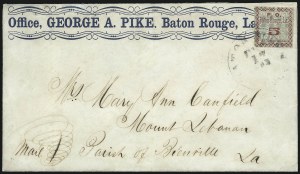 Office, GEORGE A. PIKE, Baton Rouge, La
P.O.
5
Mrs Mary Ann Canfield
Mount Lebanon
Mail Parish of Bienville
La